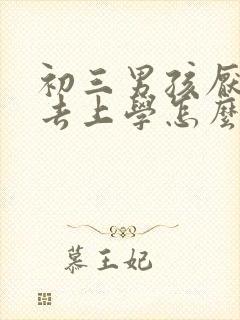 初三男孩厭
去上學怎麼
慕王妃